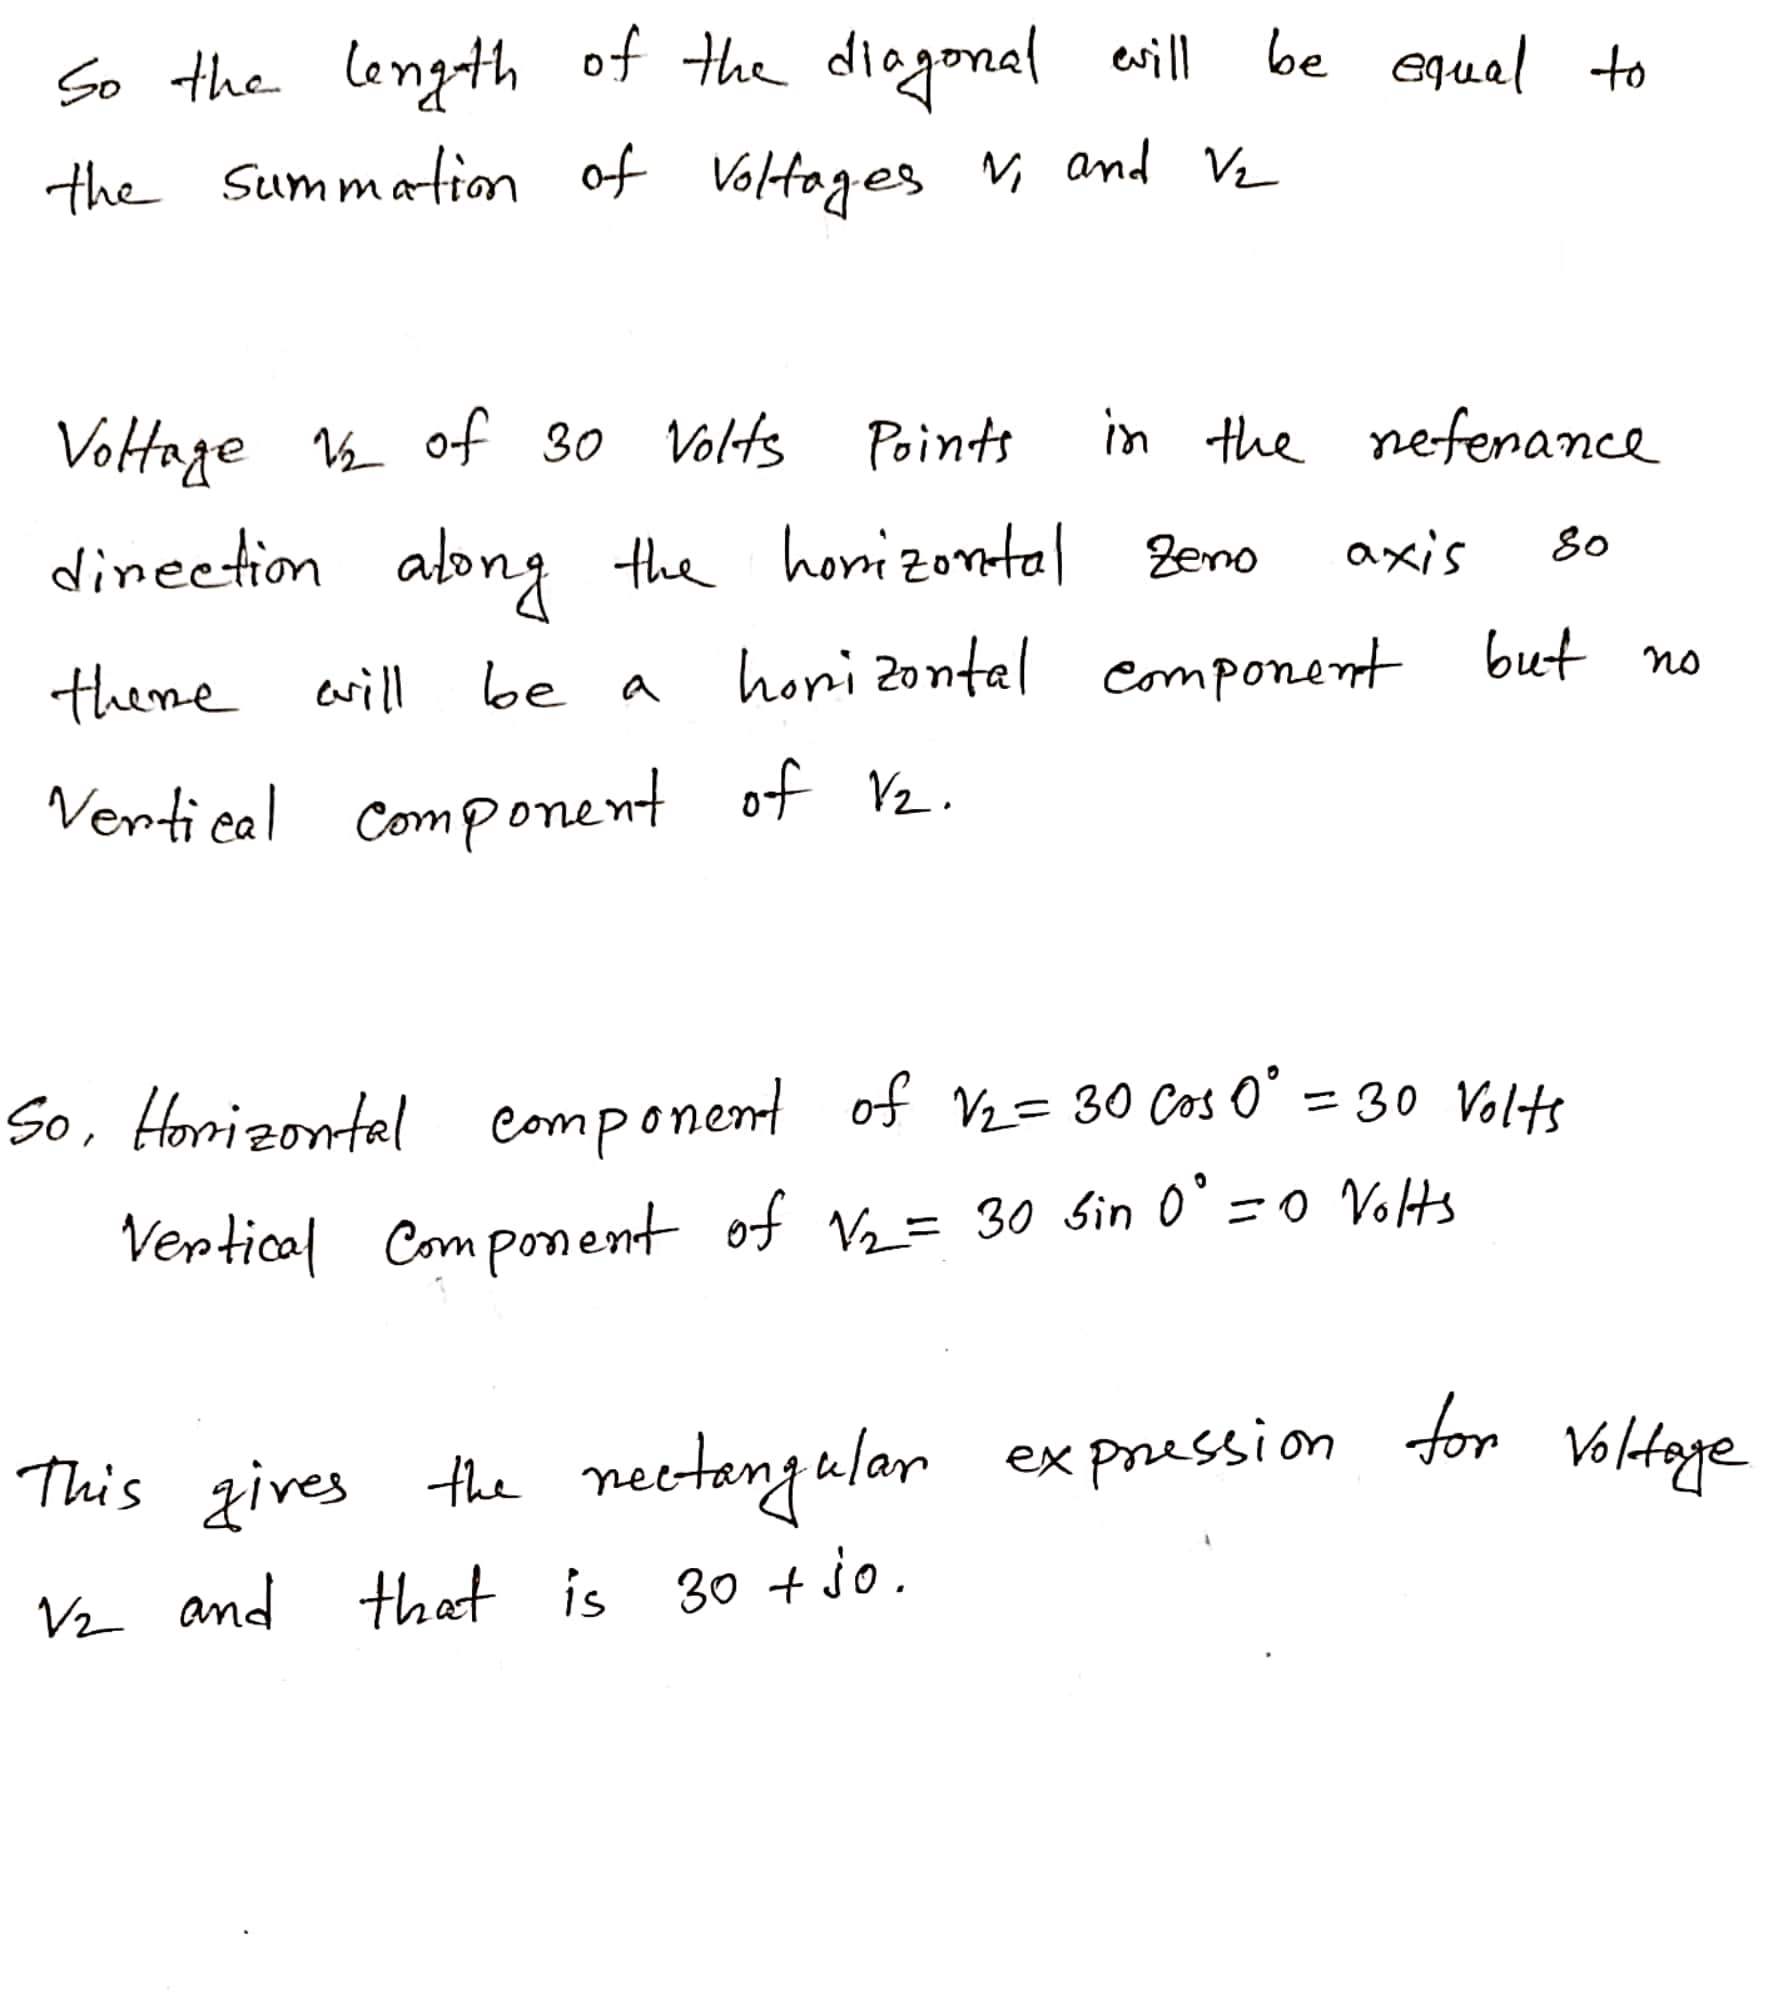 So the length of the diagonal will be equal to
the summation of Voltages V₁ and V₂
Voltage V₂ of 30 Volts Points in the referance
direction along the horizontal zero axis so
there will be a horizontal component but no
Vertical component of V₂.
So, Horizontal component of V₂ = 30 Cos 0° = 30 Volts
Vertical Component of V₂ = 30 Sin 0° = 0 Volts
This gives the rectangular expression for Voltage
V₂ and that is 30 + j0.